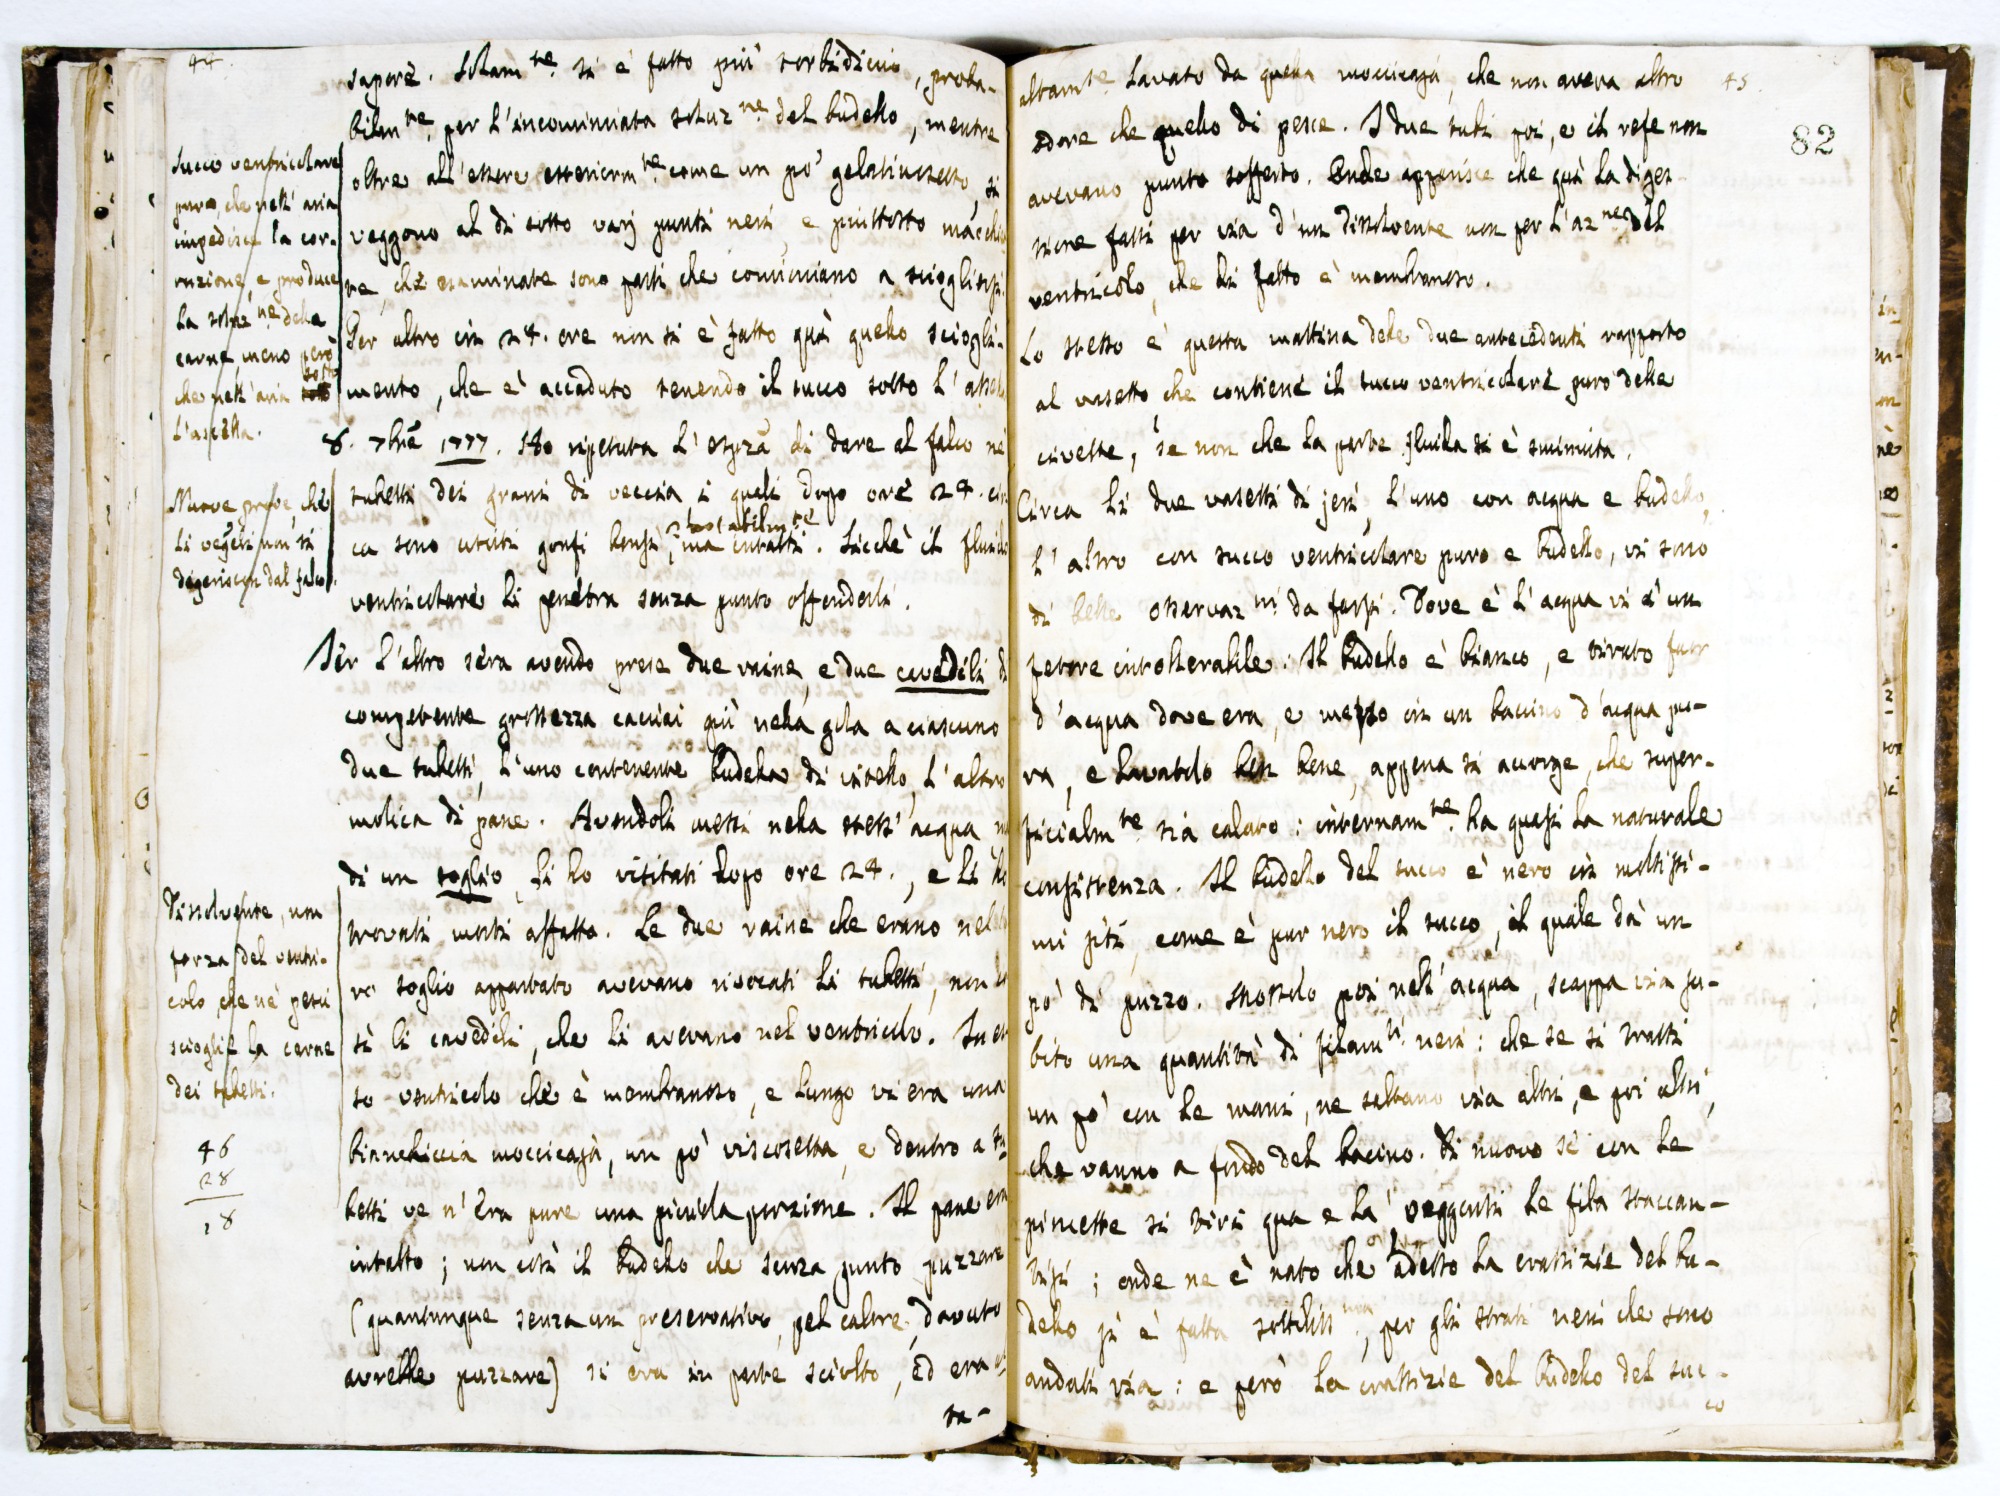 44.
sapore. Solam.te si è fatto più torbidiccio, proba-
bilm.te per l'incominciata soluz.ne del budello, mentre
oltre all'essere esteriorm.te come un po' gelatinosetto, si
veggono al di sotto varj punti neri, e piuttosto macchiet
te, che esaminate sono parti che cominciano a sciogliersi.
Per altro in 24. ore non si è fatto quà quello sciogli-
mento, che è accaduto tenendo il succo sotto l'ascella
8. 7bre 1777. Ho ripetuta l'espza di dare al falco ne'
tubetti dei grani di veccia i quali dopo ore 24. cir
ca sono usciti gonfi bensì, ma intatti. Sicchè il fluido
ventricolare li penetra senza punto offenderli.
Jer l'altro sera avendo prese due raine, e due cavedili di
competente grossezza cacciai giù nella gola a ciascuno
due tubetti, l'uno contenente budella di vitello, l'altro
molica di pane. Avendoli messi nella stess' acqua
di un soglio, li ho visitati dopo ore 24., e li ho
trovati morti affatto. Le due raine che erano nel
soglio appartato avevano rivocati li tubetti, non co
sì li cavedili, che li avevano nel ventricolo. In es
so ventricolo che è membranoso, e lungo vi era una
bianchiccia moccicaja, un po' viscosetta, e dentro a tu
betti ve n'era pure una piccola porzione. Il pane era
intatto; non così il budello che senza punto puzzare
(quantunque senza un preservativo, pel calore, dovuto
avrebbe puzzare) si era in parte sciolto, ed era
ta-
Succo ventricolare
puro, che nell' aria
impedisce la cor-
ruzione, e produce
la soluz.ne della
carne, meno però
che nell' aria sotto
l'ascella.
Nuove prove, che
li vegeti non si
digeriscon dal falco.
Dissolvente, non
forza del ventri-
colo, che nè pesci
scioglie la carne
dei tubetti.
46
28
18
45.
82
altam.te lavato da quella moccicaja, che non aveva altro
odore che quello di pesce. I due tubi poi, e il refe non
avevano punto sofferto. Onde apparisce che quà la diges-
tione fassi per via d'un dissolvente non per l'az.ne del
ventricolo, che di fatto è membranoso.
Lo stesso è questa mattina delle due antecedenti rapporto
al vasetto che contiene il succo ventricolare puro delle
civette, se non che la parte fluida si è sminuita.
Circa li due vasetti di jeri, l'uno con acqua e budello,
l'altro con succo ventricolare puro e budello, vi sono
di belle osservaz.ni da farsi. Dove è l'acqua vi è un
fetore intollerabile. Il budello è bianco, e tirato fuor
d'acqua dove era, e messo in un baccino d'acqua pu-
ra, e lavatolo ben bene, appena si accorge, che super-
ficialm.te sia calato: internam.te ha quasi la naturale
consistenza. Il budello del succo è nero in moltissi-
mi siti, come è pur nero il succo, il quale dà un
po' di puzzo. Mossolo poi nell' acqua, scappa via su-
bito una quantità di filam.ti neri: che se si tratti
un po' con le mani, ne saltano via altri, e poi altri,
che vanno a fondo del bacino. Di nuovo se con le
pincette si tiri qua e là veggonsi le fila staccan-
tisi; onde ne è nato che adesso la crassizie del bu-
dello si è fatta sottiliss.ma, per gli strati neri che sono
andati via: e però la crassizie del budello del suc-
co